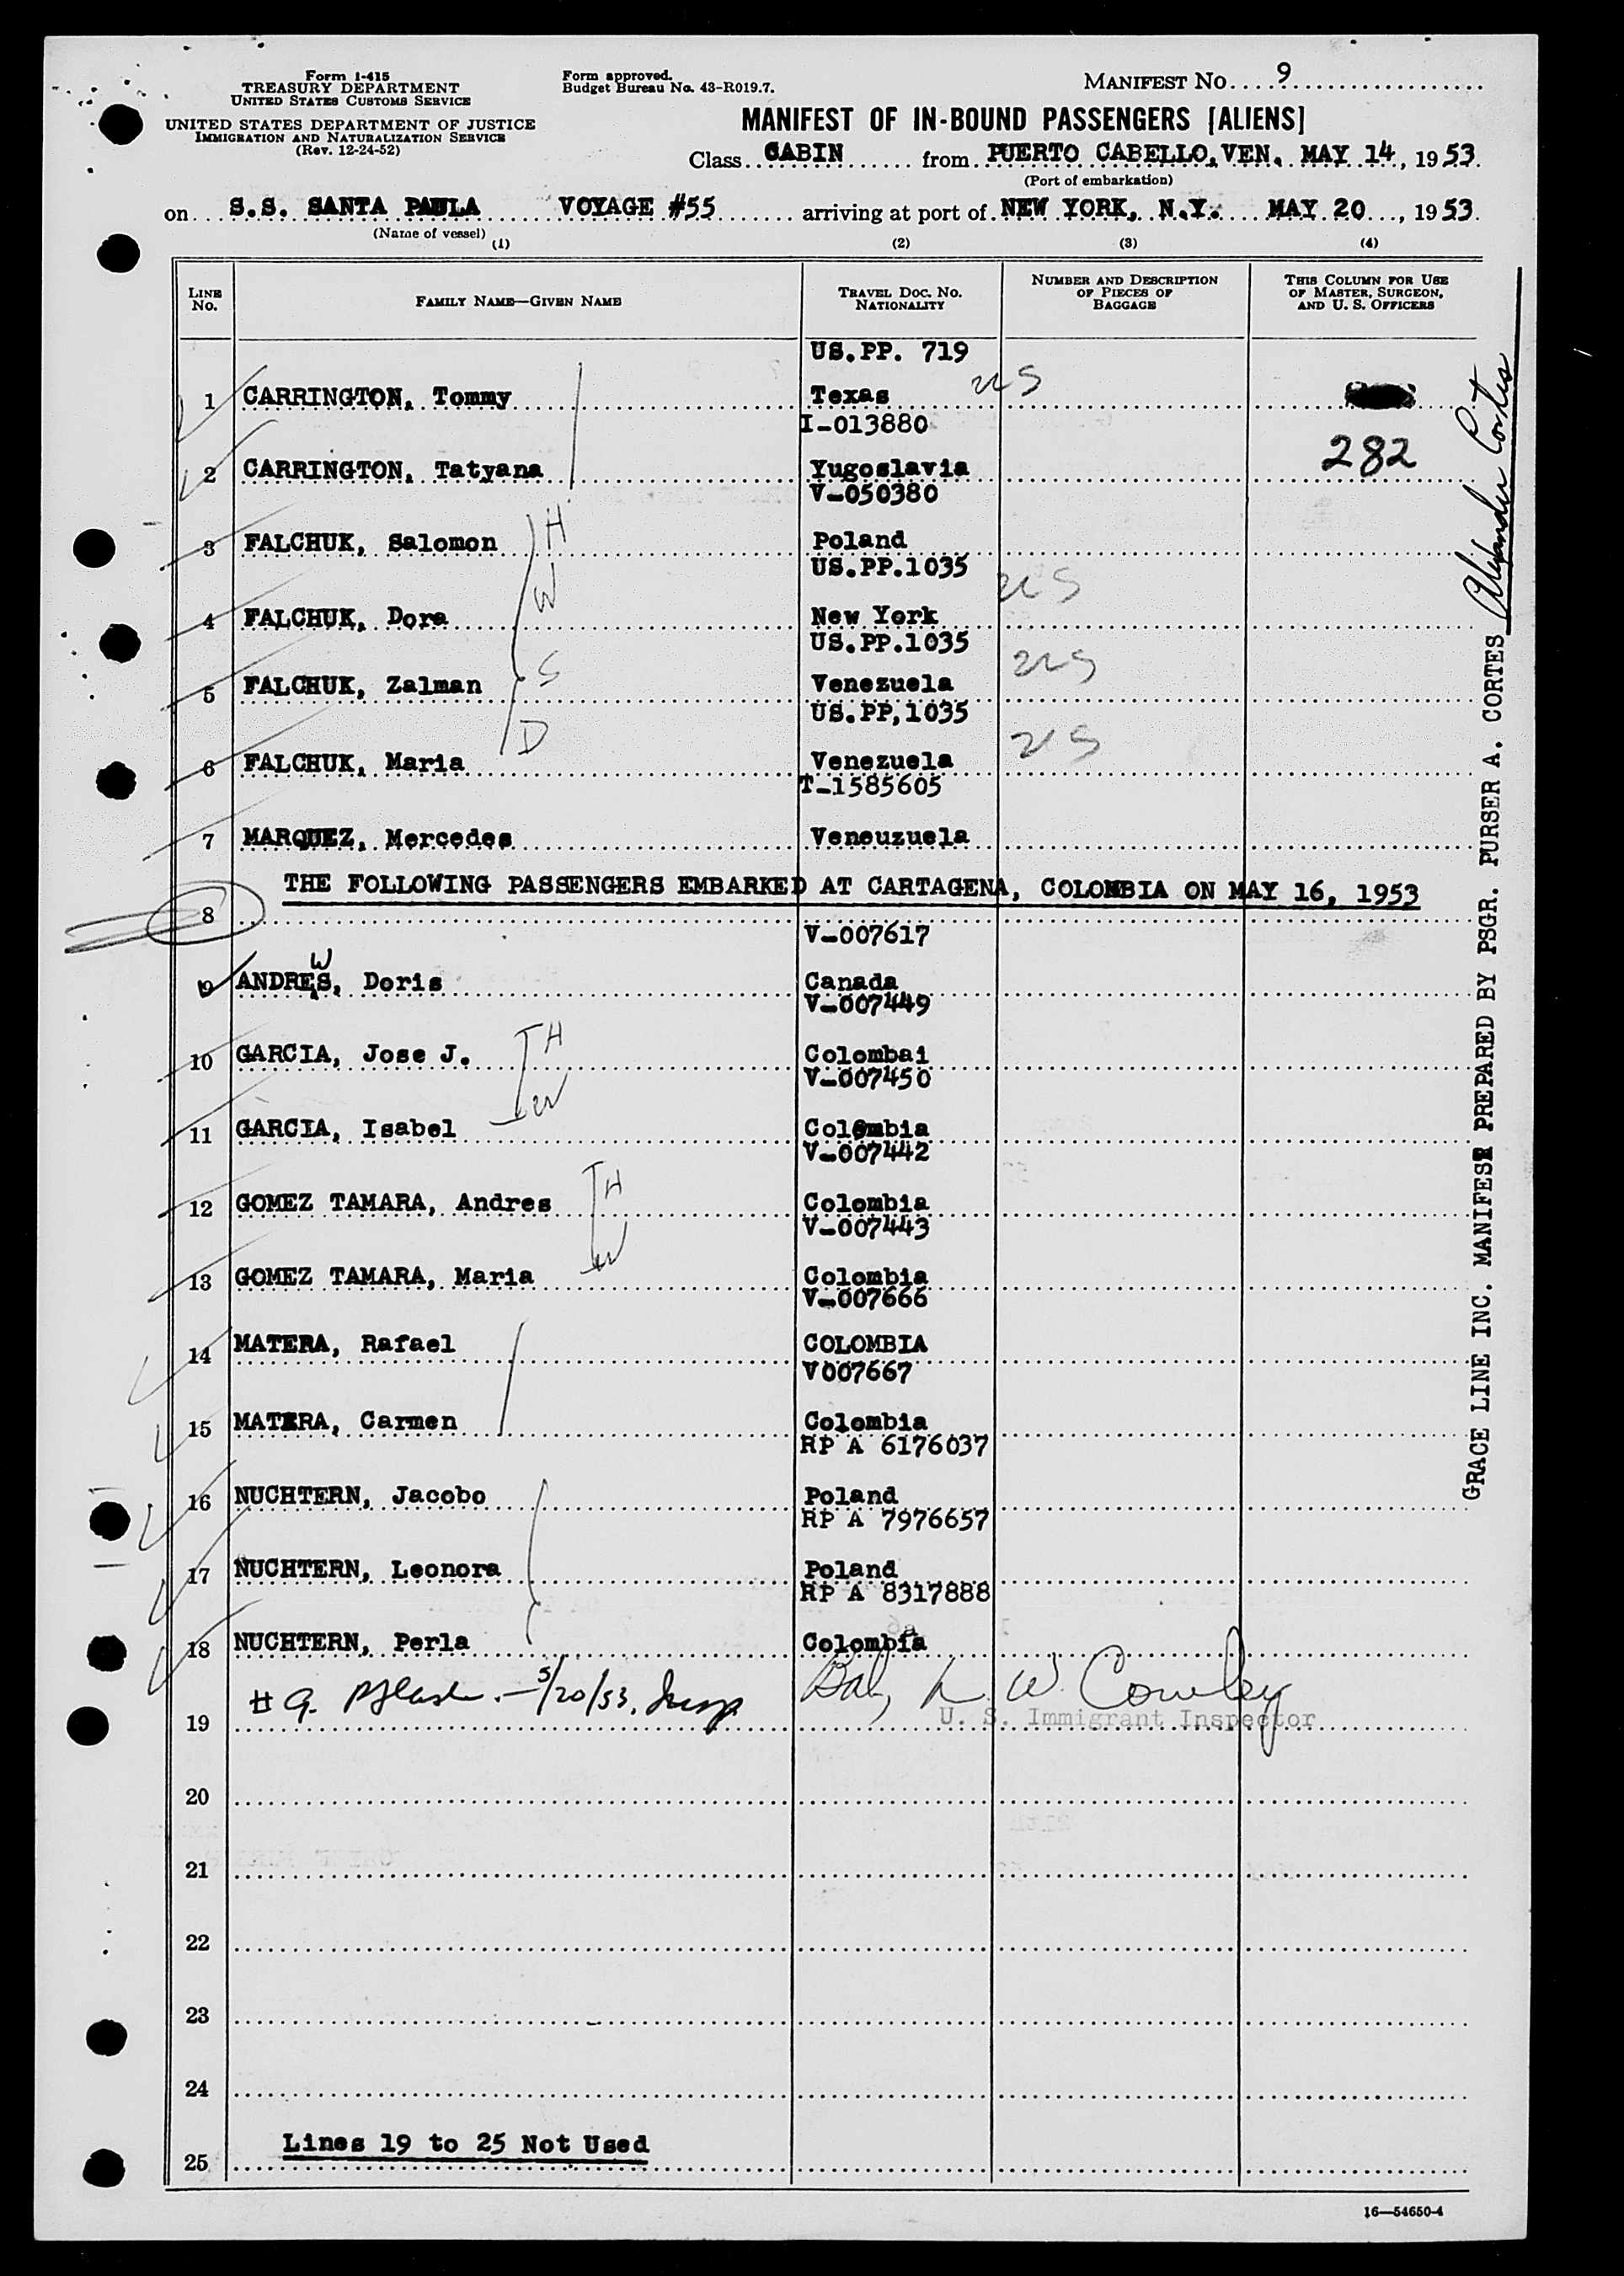 Form I-415
TREASURY DEPARTMENT
UNITED STATES CUSTOMS SERVICE
UNITED STATES DEPARTMENT OF JUSTICE
IMMIGRATION AND NATURALIZATION SERVICE
(Rev. 12-24-52)
Form approved.
Budget Bureau No. 43-R019.7.
MANIFEST NO. 9
MANIFEST OF IN-BOUND PASSENGERS [ALIENS]
Class CABIN from PUERTO CABELLO, VEN. MAY 14, 1953.
(Port of embarkation)
on S.S. SANTA PAULA VOYAGE #55 arriving at port of NEW YORK, N.Y. MAY 20, 1953.
(Name of vessel)
(1) (2) (3) (4)
LINE No.
FAMILY NAME—GIVEN NAME
TRAVEL DOC. NO. NATIONALITY
NUMBER AND DESCRIPTION OF PIECES OF BAGGAGE
THIS COLUMN FOR USE OF MASTER, SURGEON, AND U. S. OFFICERS
US.PP. 719
1 CARRINGTON, Tommy Texas US
I-013880
2 CARRINGTON, Tatyana Yugoslavia 282
V-050380
3 FALCHUK, Salomon H Poland
US.PP.1035
4 FALCHUK, Dora W New York US
US.PP.1035
5 FALCHUK, Zalman S Venezuela US
US.PP,1035
6 FALCHUK, Maria D Venezuela US
T-1585605
7 MARQUEZ, Mercedes Veneuzuela
THE FOLLOWING PASSENGERS EMBARKED AT CARTAGENA, COLOMBIA ON MAY 16, 1953
8
V-007617
W
9 ANDRES, Doris Canada
V-007449
10 GARCIA, Jose J. H Colombai
V-007450
11 GARCIA, Isabel W Colombia
V-007442
12 GOMEZ TAMARA, Andres H Colombia
V-007443
13 GOMEZ TAMARA, Maria W Colombia
V-007666
14 MATERA, Rafael COLOMBIA
V007667
15 MATERA, Carmen Colombia
RP A 6176037
16 NUCHTERN, Jacobo Poland
RP A 7976657
17 NUCHTERN, Leonora Poland
RP A 8317888
18 NUCHTERN, Perla Colombia
# 9. 5/20/53. Insp. Bal, L. W. Cowley
19 U. S. Immigrant Inspector
20
21
22
23
24
Lines 19 to 25 Not Used
25
16—54650-4
GRACE LINE INC. MANIFEST PREPARED BY PSGR. PURSER A. CORTES Alexander Cortes